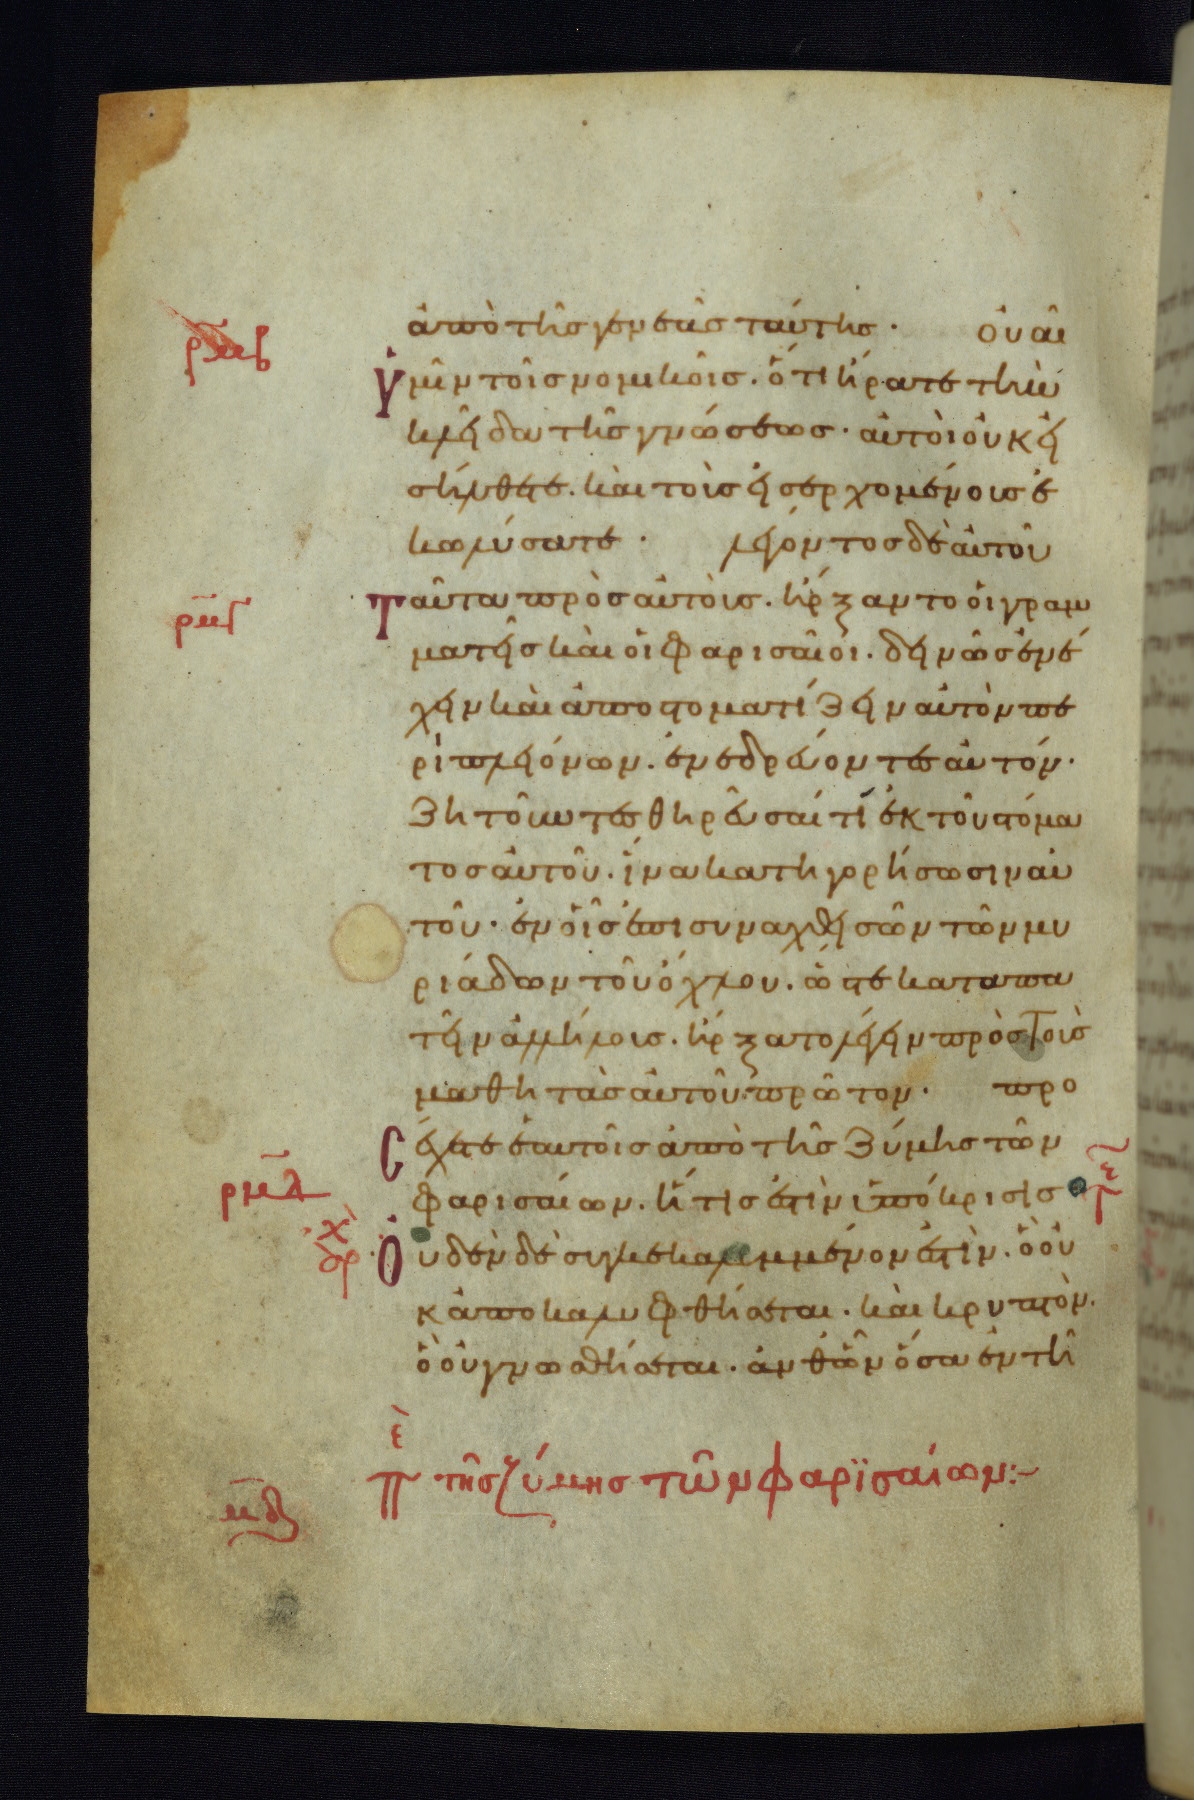 ρ̅μ̅β̅ ἀπὸ τῆς γενεᾶς ταύτης· οὐαὶ
ὑμῖν τοῖς νομικοῖς. ὅτι ἤρατε τὴν
κλεῖδα τῆς γνώσεως· αὐτοὶ οὐκ εἰ
σήλθατε. καὶ τοῖς εἰσερχομένοις ἐ
κωλύσατε· λέγοντος δὲ αὐτοῦ
ρ̅μ̅γ̅ ταῦτα πρὸς αὐτοῖς. ἤρξαντο οἱ γραμ
ματεῖς καὶ οἱ φαρισαῖοι. δεινῶς ἐνέ
χειν καὶ ἀποστοματίζειν αὐτὸν πε
ρὶ πλειόνων. ἐνεδρεύοντες αὐτόν.
ζητοῦντες θηρεῦσαί τι ἐκ τοῦ στόμα
τος αὐτοῦ. ἵνα κατηγορήσωσιν αὐ
τοῦ· ἐν οἷς ἐπισυναχθεισῶν τῶν μυ
ριάδων τοῦ ὄχλου. ὥστε καταπα
τεῖν ἀλλήλοις. ἤρξατο λέγειν πρὸς τοὶς
μαθητὰς αὐτοῦ· πρῶτον· προ
σέχετε ἑαυτοῖς ἀπὸ τῆς ζύμης τῶν
ρ̅μ̅δ̅ φαρισαίων. ἥτις ἐστὶν ὑπόκρισις
οὐδὲν δὲ συγκεκαλυμμένον ἐστὶν. ὃ οὐ
κ ἀποκαλυφθήσεται. καὶ κρυπτὸν.
ὃ οὐ γνωσθήσεται. ἀνθῶν ὅσα ἐν τῆ
μ̅δ̅ πε τῆς ζύμης τῶν φαρϊσαίων:~